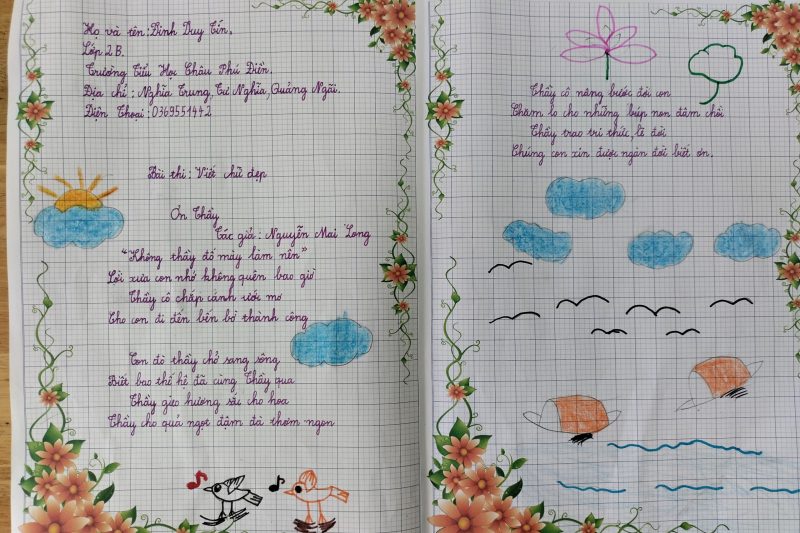 Họ và tên: Đinh Duy Tín.
Lớp 2B.
Trường Tiểu Học Châu Phú Điền.
Địa chỉ: Nghĩa Trung, Tư Nghĩa, Quảng Ngãi.
Điện Thoại: 0369551442
Bài thi: Viết chữ đẹp
Ơn Thầy
Tác giả: Nguyễn Mai Long
"Không thầy đố mày làm nên"
Lời xưa con nhớ không quên bao giờ
Thầy cô chấp cánh ước mơ
Cho con đi đến bến bờ thành công
Con đò thầy chở sang sông
Biết bao thế hệ đã cùng Thầy qua
Thầy gieo hương sắc cho hoa
Thầy cho quả ngọt đậm đà thơm ngon
Thầy cô nâng bước đời con
Chăm lo cho những búp non đâm chồi
Thầy trao tri thức, lẽ đời
Chúng con xin được ngàn đời biết ơn.